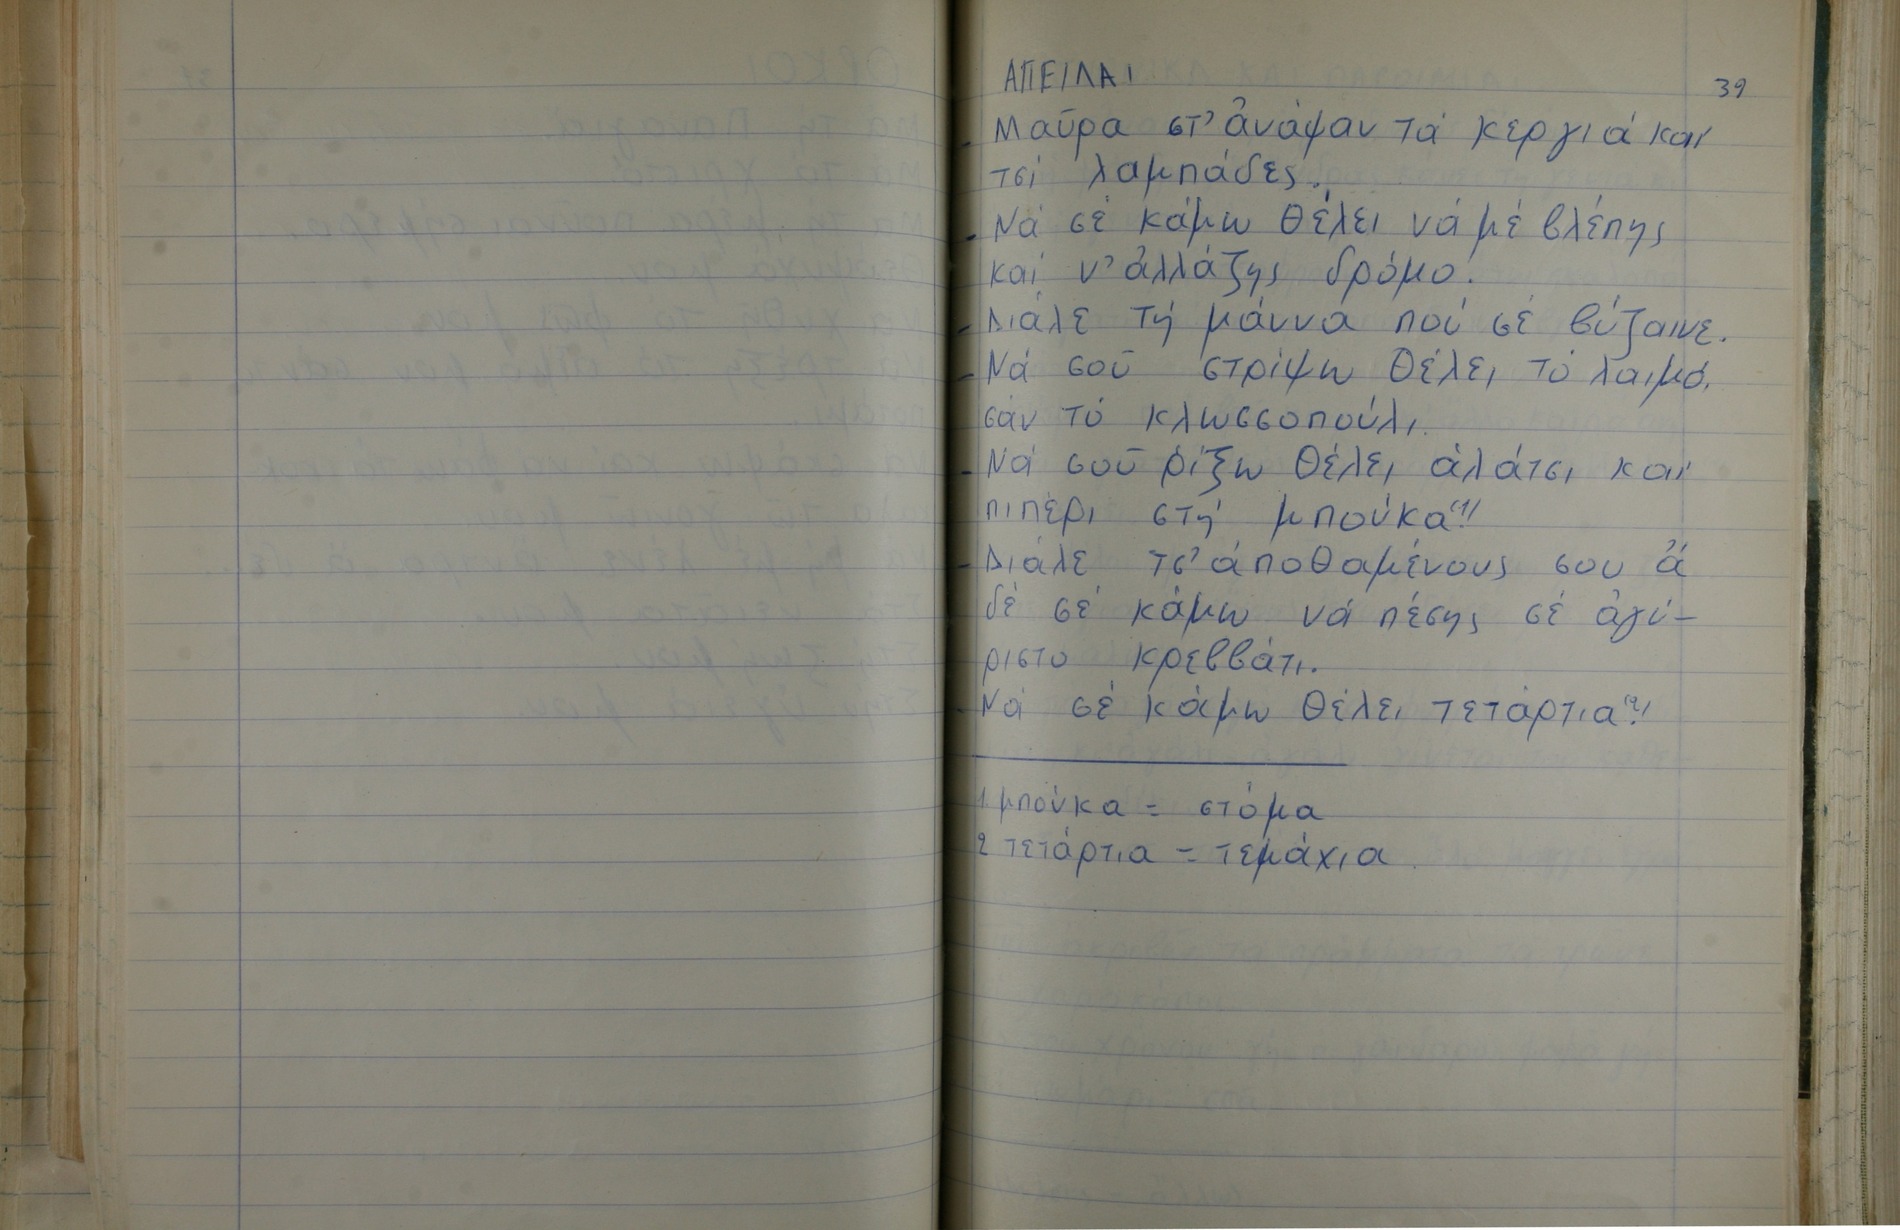 ΑΠΕΙΛΑΙ
39
- Μαῦρα στ' ἀνάψαν τά κεργιά καί
τσί λαμπάδες.
- Νά σέ κάμω θέλει νά μέ βλέπης
καί ν' ἀλλάζης δρόμο.
- Διάλε τή μάννα πού σέ βύζαινε.
- Νά σοῦ στρίψω θέλει τό λαιμό,
σάν τό κλωσσοπούλι.
- Νά σοῦ ρίξω θέλει ἁλάτσι καί
πιπέρι στή μπούκα(1)!
- Διάλε τσ' ἀποθαμένους σου ἄ
δέ σέ κάμω νά πέσης σέ ἀγύ-
ριστο κρεββάτι.
- Νά σέ κάμω θέλει τετάρτια(2)!
1 μπούκα = στόμα
2 τετάρτια = τεμάχια